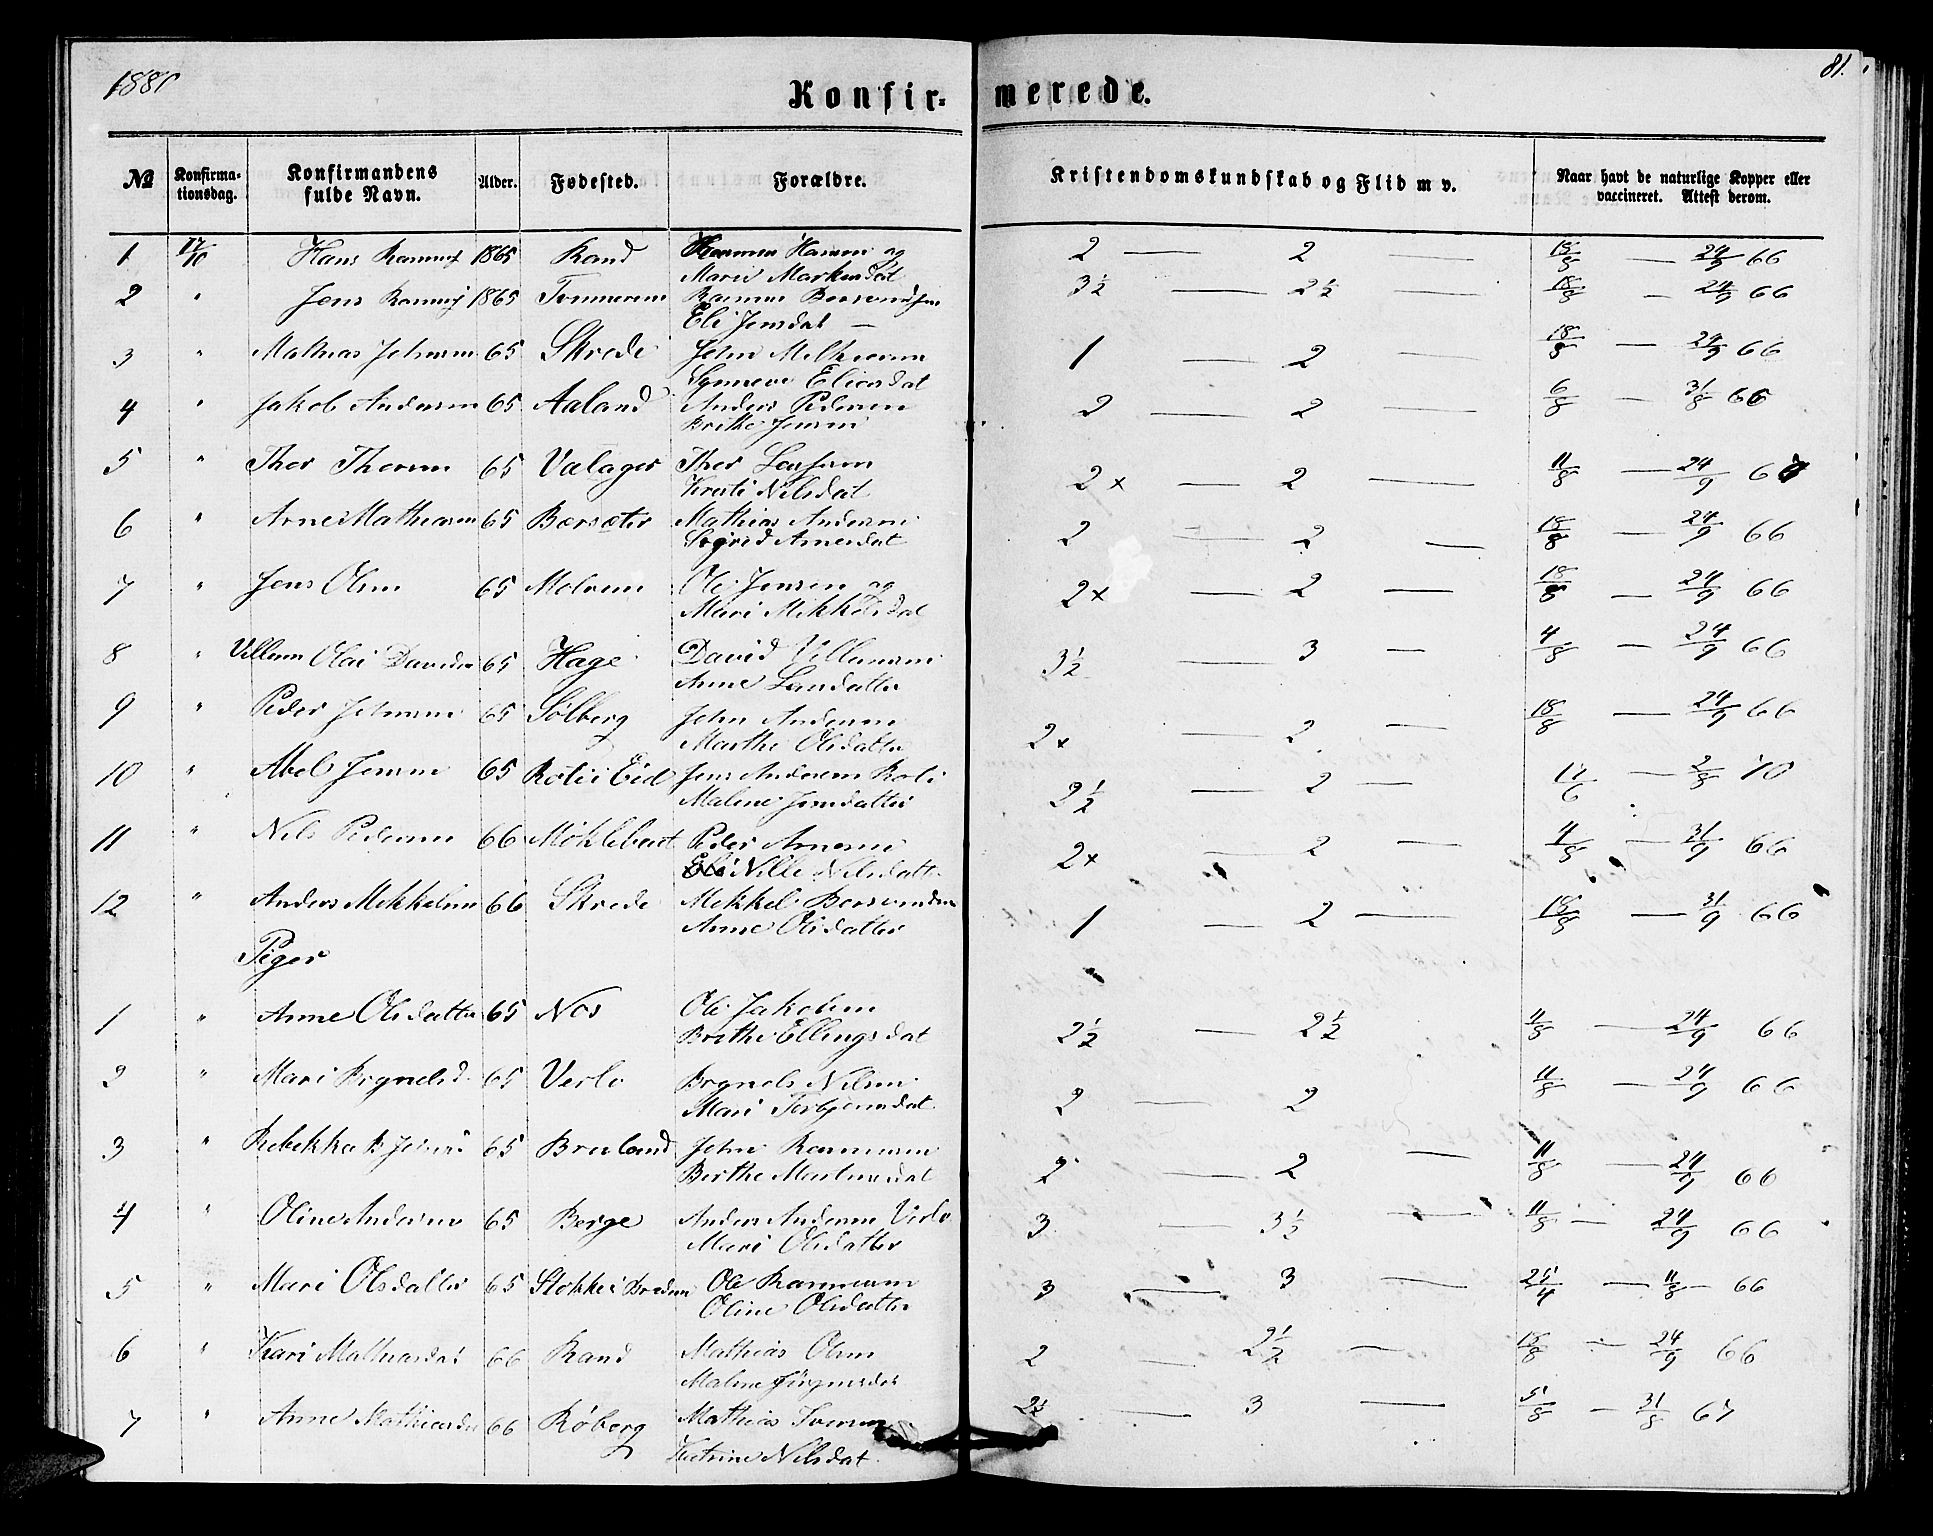 1880
81.
Konfir= merede.
№ Konfirma-tionsdag. Konfirmandens fulde Navn. Alder. Fødested. Forældre. Kristendomskundskab og Flid m v. Naar havt de naturlige Kopper eller vaccineret. Attest derom.
1 17/10 Hans 1865 Rand Hansen og 2 — 2 — 18/8 — 24/9 66
Marie Markusdat
2 " Jens 1865 Tommeren Rasmus 3½ — 2½ — 18/8 — 24/9 66
Eli Jensdat —
3 " Mathias Johnsen 65 Skrede John 1 — 2 — 18/8 — 24/9 66
Synneve Eliasdat
4 " Jakob Andersen 65 Aaland Anders Pedersen 2 — 2 — 6/8 — 31/8 66
Brithe Jensen
5 " Thor Thorsen 65 Valager Thor Larssen 2 x — 2 — 11/8 — 24/9 67
Kristi Nilsdat
6 " Arne Mathiasen 65 Bersæter Mathias Andersen 2 — 2 — 18/8 — 24/9 66
Sigrid Arnesdat
7 " Jens Olsen 65 Molveen Ole Jensen og 2x — 2 — 18/8 — 24/9 66
Mari Mikkelsdat
8 " Villum Olai Davidsen 65 Hage David Villumsen 3½ — 3 — 4/8 — 24/9 66
Anne Larsdatter
9 " Peder Johnsen 65 Sølberg John Andersen 2x — 2 — 18/8 — 24/9 66
Marthe Olsdatter
10 " Abel Jensen 65 Roti i Eid Jens Andersen Roti 2½ — 2 — 17/6 — 2/8 70
Malene Jensdatter
11 " Nils Pedersen 66 Møklebust Peder Arnesen 2x — 2 — 4/8 — 31/9 66
Nille Nilsdatter
12 " Anders Mikkelsen 66 Skrede Mikkel 1 — 2 — 18/8 — 31/9 66
Anne Olsdatter
Piger
1 " Anne Olsdatter 65 Nos Ole Jakobsen 2½ — 2½ 11/8 — 24/9 66
Brithe Ellingsdat
2 " Mari Brynelsd. 65 Verlo Brynels Nilsen 2 — 2 11/8 — 24/9 66
Mari Torbjørnsdat.
3 " Rebekka B 65 Breland John Rasmusen 2 — 2 — 11/8 — 24/9 66
Berthe Martinusdat
4 " Oline Andersen 65 Berge Anders Andersen Verlo 3 — 3½ — 11/8 — 24/9 66
Mari Olsdatter
5 " Mari Olsdatter 65 Stokke i Ole Rasmusen 3 — 3 — 25/4 — 11/8 — 66
Oline Olsdatter
6 " Kari Mathiasdat 66 Rand Mathias Olsen 2 — 2½ — 18/8 — 24/9 66
Malene Jørgensdat
7 " Anne Mathiasdat 66 Røberg Mathias Iversen 2½ — 3 — 5/8 — 31/8 67
Katrine Nilsdat.